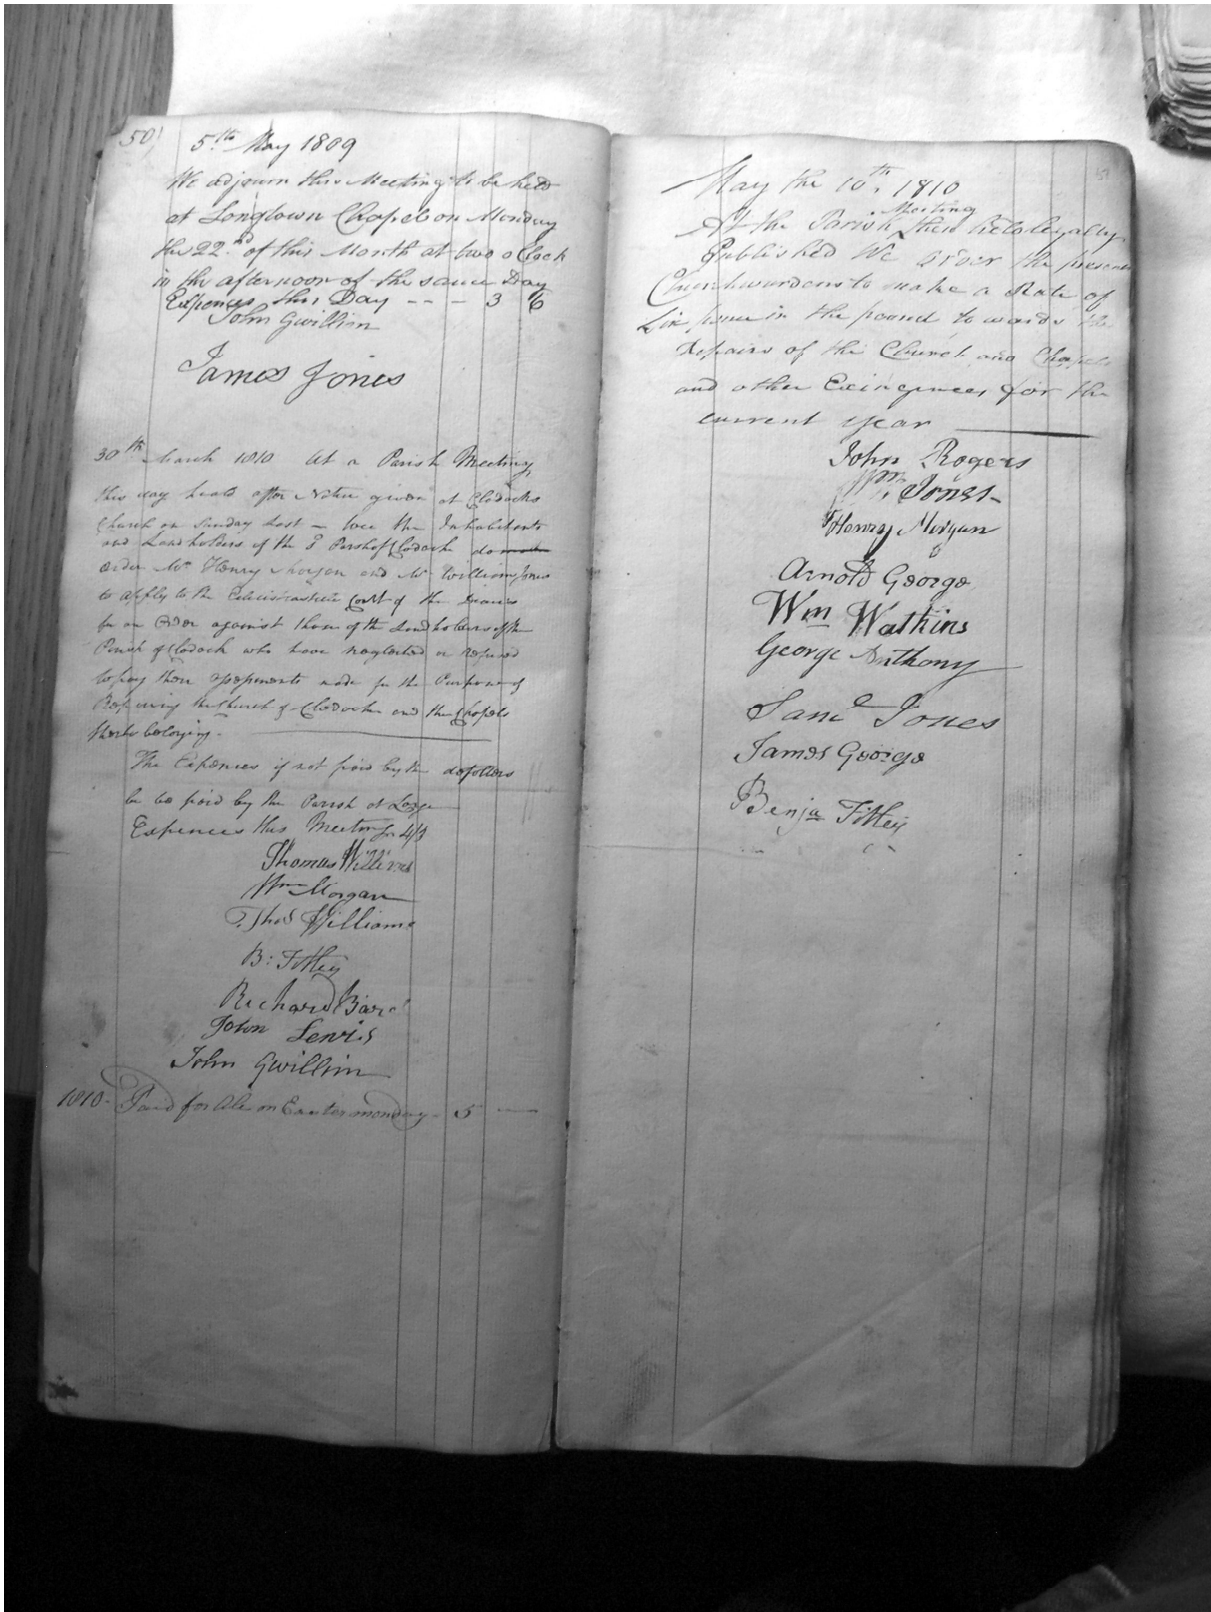 50
5.th May 1809
We adjourn this Meeting to be held
at Longtown Chapel on Monday
the 22.nd of this Month at two o Clock
in the afternoon of the same Day
Expences this Day -- - 3 6
John Gwillim
James Jones
30th March 1810 At a Parish Meeting
this day heald after Notice given at Clodocks
Church on Sunday Last – wee the Inhabitants
and Landholders of the Parsh of Clodock do
order Mr Henry Morgan and Mr William Jones
to apply to the Court of the
for an Order against those of the Landholders of the
Parish of Clodock who have neglected or refused
to pay their made for the Purpose of
Repairing the Church of Clodock and the Chapels
belonging.
The Expences if not paid by the
be to paid by the Parish at Large
Expences this Meeting 4/3
Thomas Williams
Wm Morgan
Thos Williams
B: Fittey
Richard
John Lewis
John Gwillim
1810- Paid for Ale on Easter monday - 5 --
51
May the 10th. 1810
Meeting
At the Parish then held legally
Published We order the present
Churchwardens to make a Rate of
Six pence in the pound towards the
Repairs of the Church and Chapels
and other for the
current year
John Rogers
Wm. Jones-
Henry Morgan
Arnold George
Wm Watkins
George Anthony
Saml Jones
James George
Benja Fittey